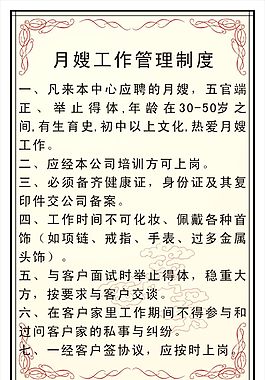 月嫂工作管理制度
一、凡来本中心应聘的月嫂，五官端
正、举止得体，年龄在30-50岁之
间，有生育史，初中以上文化，热爱月嫂
工作。
二、应经本公司培训方可上岗。
三、必须备齐健康证，身份证及其复
印件交公司备案。
四、工作时间不可化妆、佩戴各种首
饰（如项链、戒指、手表、过多金属
头饰）。
五、与客户面试时举止得体，稳重大
方，按要求与客户交谈。
六、在客户家里工作期间不得参与和
过问客户家的私事与纠纷。
七、一经客户签协议，应按时上岗。